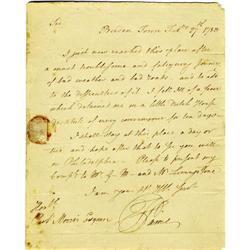 Sir
Prison Town Feb.y 27th 1783
I just now reached this place after
a most troublesome and fatiguing journey
of bad weather and bad roads, and to add
to the difficulties of it I fell ill of a fever
which detained me in a little Dutch House
destitute of every convenience for ten days
I shall stay at this place a day or
two, and hope after that to see you well
in Philadelphia. Please to present my
Compts to Mr G. M— and Mr Livingstone
I am your
Honble
Robt Morris Esquire